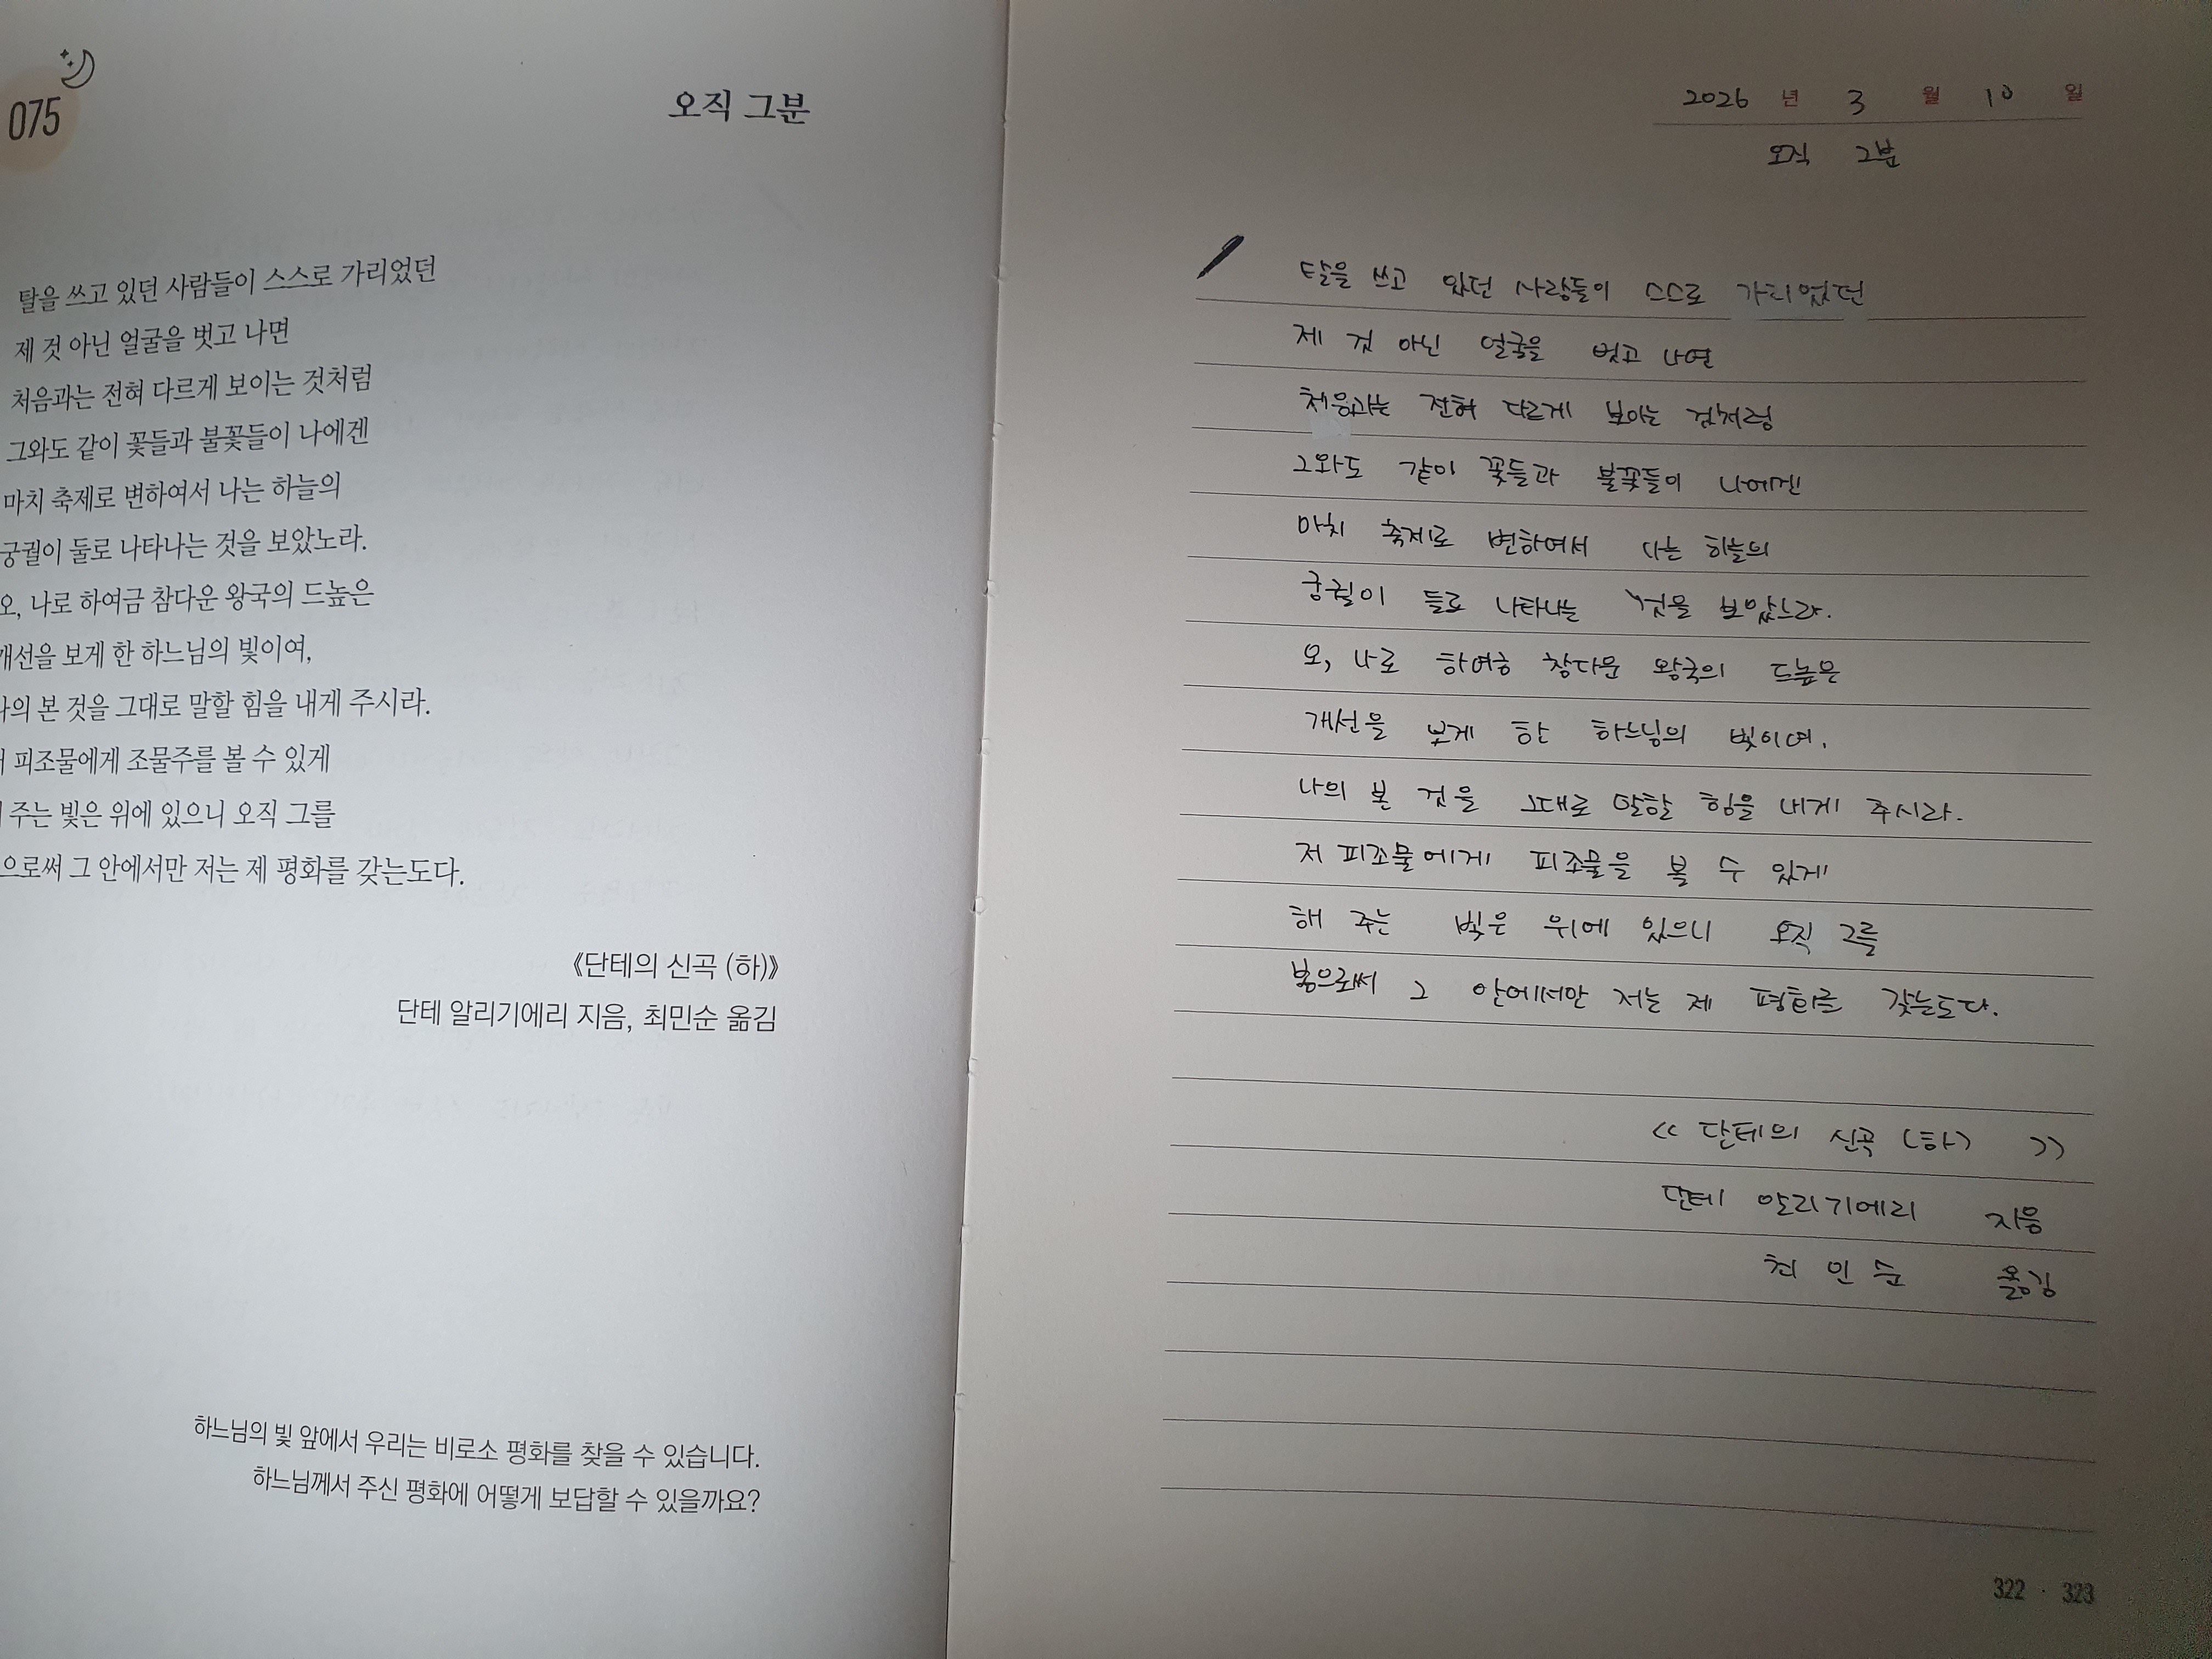 075
오직 그분
탈을 쓰고 있던 사람들이 스스로 가리었던
제 것 아닌 얼굴을 벗고 나면
처음과는 전혀 다르게 보이는 것처럼
그와도 같이 꽃들과 불꽃들이 나에겐
마치 축제로 변하여서 나는 하늘의
궁궐이 둘로 나타나는 것을 보았노라.
오, 나로 하여금 참다운 왕국의 드높은
개선을 보게 한 하느님의 빛이여,
나의 본 것을 그대로 말할 힘을 내게 주시라.
피조물에게 조물주를 볼 수 있게
주는 빛은 위에 있으니 오직 그를
으로써 그 안에서만 저는 제 평화를 갖는도다.
《단테의 신곡 (하)》
단테 알리기에리 지음, 최민순 옮김
하느님의 빛 앞에서 우리는 비로소 평화를 찾을 수 있습니다.
하느님께서 주신 평화에 어떻게 보답할 수 있을까요?
2026 년 3 월 10 일
오직 그분
탈을 쓰고 있던 사람들이 스스로 가리었던
제 것 아닌 얼굴을 벗고 나면
처음과는 전혀 다르게 보이는 것처럼
그와도 같이 꽃들과 불꽃들이 나에겐
마치 축제로 변하여서 나는 하늘의
궁궐이 둘로 나타나는 것을 보았노라.
오, 나로 하여금 참다운 왕국의 드높은
개선을 보게 한 하느님의 빛이여,
나의 본 것을 그대로 말할 힘을 내게 주시라.
저 피조물에게 피조물을 볼 수 있게
해 주는 빛은 위에 있으니 오직 그를
봄으로써 그 안에서만 저는 제 평화를 갖는도다.
《 단테의 신곡 (하) 》
단테 알리기에리 지음
최민순 옮김
322 · 323